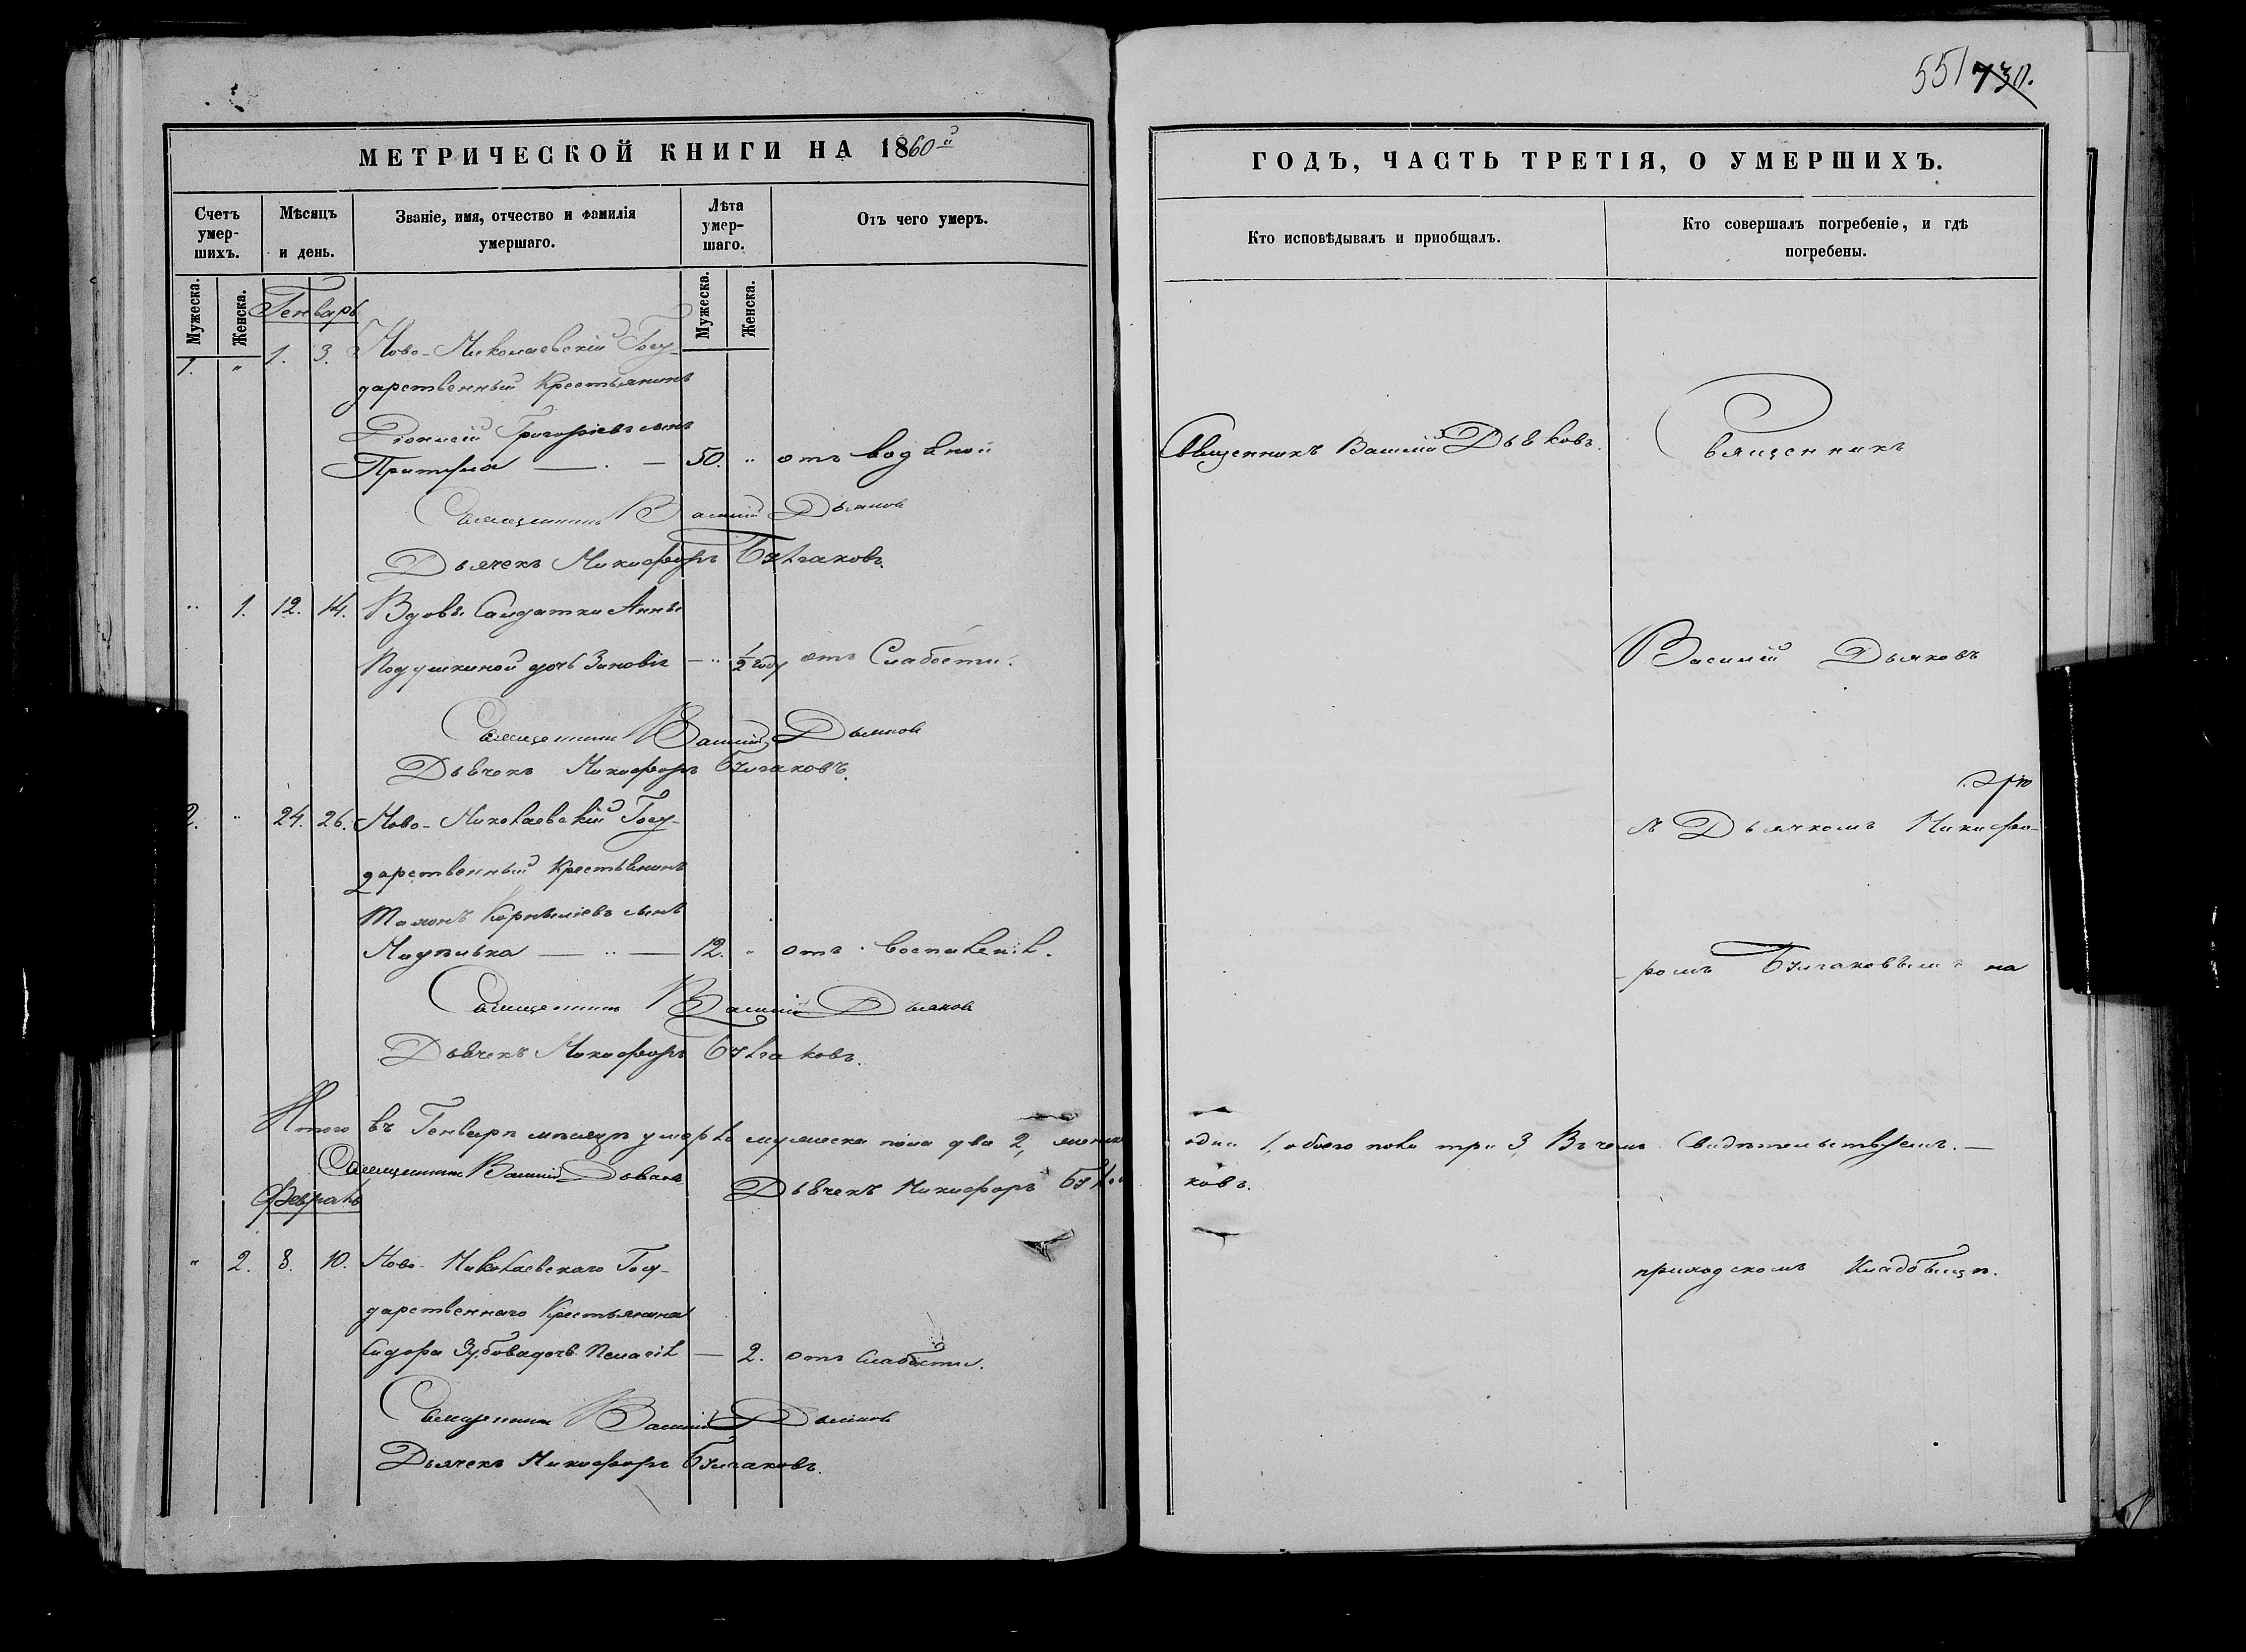 551 730.
МЕТРИЧЕСКОЙ КНИГИ НА 1860й
Счетъ умер-шихъ.
Мѣсяцъ и день.
Званіе, имя, отчество и фамилія умершаго.
Лѣта умер-шаго.
Отъ чего умеръ.
Мужеска.
Женска.
Мужеска.
Женска.
Генварь
1. " 1. 3. Ново-Николаевскій Госу-
дарственный Крестьянинъ
Діонисій Григоріевъ сынъ
Притула — 50. " отъ водяной
Священникъ Василій Дьяковъ
Дьячекъ Никифоръ Булгаковъ.
" 1. 12. 14. Вдовы Салдатки Анны
Подушкиной дочь Зиновія — " 1/2 году отъ Слабости.
Священникъ Василій Дьяковъ
Дьячекъ Никифоръ Булгаковъ.
2. " 24. 26. Ново-Николаевскій Госу-
дарственный Крестьянинъ
Корнѣліевъ сынъ
— " — 12. " отъ воспаленія.
Священникъ Василій Дьяковъ
Дьячекъ Никифоръ Булгаковъ.
Итого въ Генварѣ мѣсяцѣ умерло мужеска пола два 2, женска
Священникъ Василій Дьяковъ Дьячекъ Никифоръ Булга
Февраль
" 2. 8. 10. Ново-Николаевскаго Госу-
дарственнаго Крестьянина
Сидора Зубова дочь Пелагія — 2. отъ слабости.
Священникъ Василій Дьяковъ
Дьячекъ Никифоръ Булгаковъ.
ГОДЪ, ЧАСТЬ ТРЕТІЯ, О УМЕРШИХЪ.
Кто исповѣдывалъ и приобщалъ.
Кто совершалъ погребеніе, и гдѣ погребены.
Священникъ Василій Дьяковъ.
Священникъ
Василій Дьяковъ
съ Дьячкомъ Никифо-
ромъ Булгаковымъ на
одна 1, обоего пола три 3, Въ чемъ Свидѣтельствуемъ. —
ковъ.
приходскомъ Кладбищѣ.